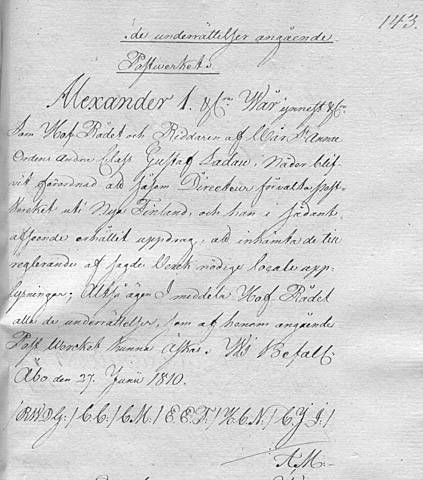 143.
de underrättelser angående
Postwerket.
Alexander 1. &Cra Wår ynnest &Cra
Som Hof Rådet och Riddaren af Wår St Annæ
Ordens Andra Class Gustaf Ladau, i Nåder blif-
vit förordnad att såsom Directeur förvalta Post-
Werket uti Nya Finland, och han i sådant
afseende erhållit uppdrag, att inhämta de till
reglerande af sagde Verck nödige locale upp-
lysningar; Altså ägen I meddela Hof Rådet
alla de underrättelser, som af honom angående
Post Werket kunna äskas. Wi Befall:
Åbo den 27. Junii 1810.
/R.W.D.G:/ C.C:/ C.M:/ E.E.T:/ H.C.N:/ C.J.I:/
A.M: